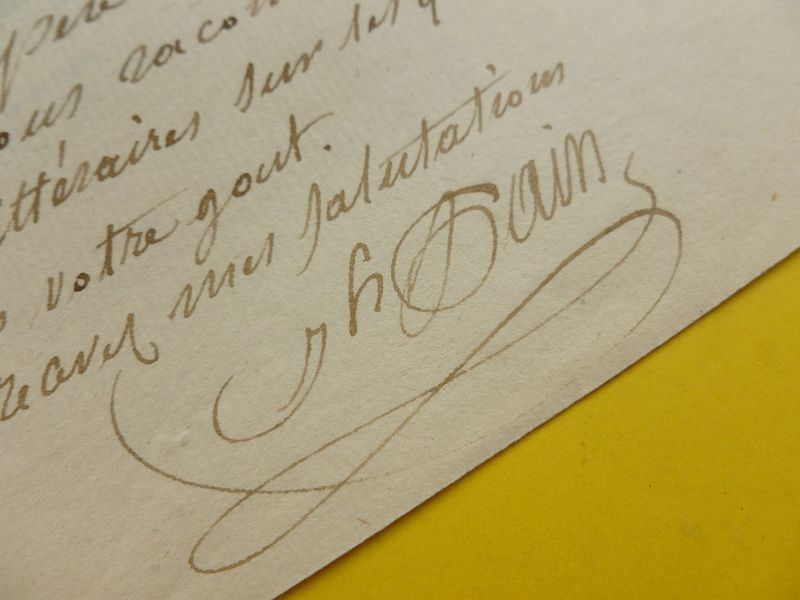 père
ous racon
ittéraires sur les q
votre gout.
recevez mes salutations
Jh Dain